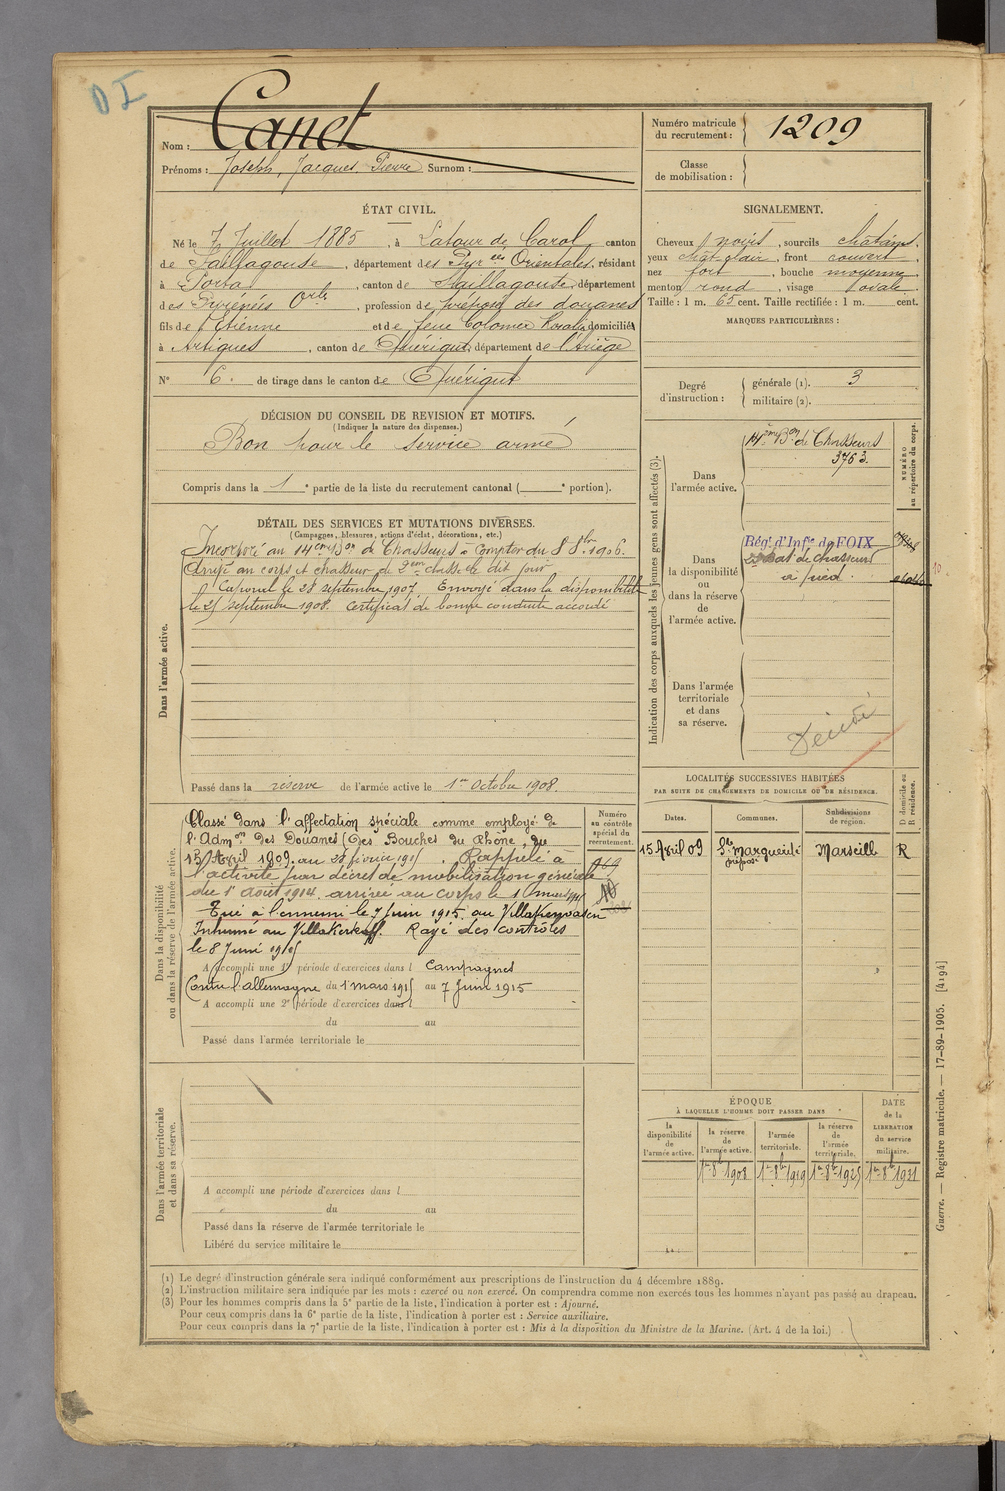 DI
Nom : Canet
Prénoms : Joseph, Jacques, Pierre Surnom :
Numéro matricule du recrutement : 1209
Classe de mobilisation :
ÉTAT CIVIL.
Né le 7 Juillet 1885, à Latour de Carol, canton
de Saillagouse, département des Pyr ées Orientales, résidant
à Porta, canton de Saillagouse, département
des Pyrénées Orles, profession de préposé des douanes
fils de Etienne et de feue Colomer Rosalie domiciliés
à Artigues, canton de Quérigut, département de l'Ariège
N° 6. de tirage dans le canton de Quérigut
SIGNALEMENT.
Cheveux noirs, sourcils châtains.
yeux chât-clair, front couvert
nez fort, bouche moyenne
menton rond, visage ovale
Taille : 1 m. 65 cent. Taille rectifiée : 1 m. cent.
MARQUES PARTICULIÈRES :
Degré d'instruction : générale (1). 3
militaire (2).
DÉCISION DU CONSEIL DE REVISION ET MOTIFS.
(Indiquer la nature des dispenses.)
Bon pour le service armé
Compris dans la 1 e partie de la liste du recrutement cantonal ( e portion).
DÉTAIL DES SERVICES ET MUTATIONS DIVERSES.
(Campagnes, blessures, actions d'éclat, décorations, etc.)
Dans l'armée active.
Incorporé au 14eme Bon de Chasseurs à compter du 8 8bre 1906.
Arrivé au corps et chasseur de 2eme classe le dit jour
Caporal le 28 septembre 1907. Envoyé dans la disponibilité
le 25 septembre 1908. Certificat de bonne conduite accordé
Passé dans la réserve de l'armée active le 1er Octobre 1908.
Indication des corps auxquels les jeunes gens sont affectés (3).
NUMÉRO au répertoire du corps.
Dans l'armée active.
14eme Bon de Chasseurs
3763.
Dans la disponibilité ou dans la réserve de l'armée active.
Régt d'Infie de FOIX
Bat de chasseurs
à pied.
10
Dans l'armée territoriale et dans sa réserve.
LOCALITÉS SUCCESSIVES HABITÉES
PAR SUITE DE CHANGEMENTS DE DOMICILE OU DE RÉSIDENCE.
Dates. Communes. Subdivisions de région. D domicile ou R résidence.
15 Avril 09 Ste Marguerite Marseille R
préposé
Dans la disponibilité ou dans la réserve de l'armée active.
Numéro au contrôle spécial du recrutement.
Classé dans l'affectation spéciale comme employé de
l'Admon des Douanes (des Bouches du Rhône, du
15 Avril 1909. au 28 février 1915. Rappelé à
l'activité par décret de mobilisation générale
du 1er Août 1914. arrivé au corps le 1 mars 1915
Tué à l'ennemi le 7 Juin 1915. au Villakerwasen
Inhumé au Villakerkoff. Rayé des contrôles
le 8 Juin 1915
A accompli une 1re période d'exercices dans l Campagnes
Contre l'allemagne du 1 mars 1915 au 7 Juin 1915
A accompli une 2e période d'exercices dans l
du au
Passé dans l'armée territoriale le
Dans l'armée territoriale et dans sa réserve.
A accompli une période d'exercices dans l
du au
Passé dans la réserve de l'armée territoriale le
Libéré du service militaire le
ÉPOQUE
À LAQUELLE L'HOMME DOIT PASSER DANS
la disponibilité de l'armée active. la réserve de l'armée active. l'armée territoriale. la réserve de l'armée territoriale.
DATE de la LIBÉRATION du service militaire.
1er 8bre 1908 1er 8bre 1919 1er 8bre 1925 1er 8bre 1931
Guerre. — Registre matricule. — 17-89-1905. [4194]
(1) Le degré d'instruction générale sera indiqué conformément aux prescriptions de l'instruction du 4 décembre 1889.
(2) L'instruction militaire sera indiquée par les mots : exercé ou non exercé. On comprendra comme non exercés tous les hommes n'ayant pas passé au drapeau.
(3) Pour les hommes compris dans la 5e partie de la liste, l'indication à porter est : Ajourné.
Pour ceux compris dans la 6e partie de la liste, l'indication à porter est : Service auxiliaire.
Pour ceux compris dans la 7e partie de la liste, l'indication à porter est : Mis à la disposition du Ministre de la Marine. (Art. 4 de la loi.)